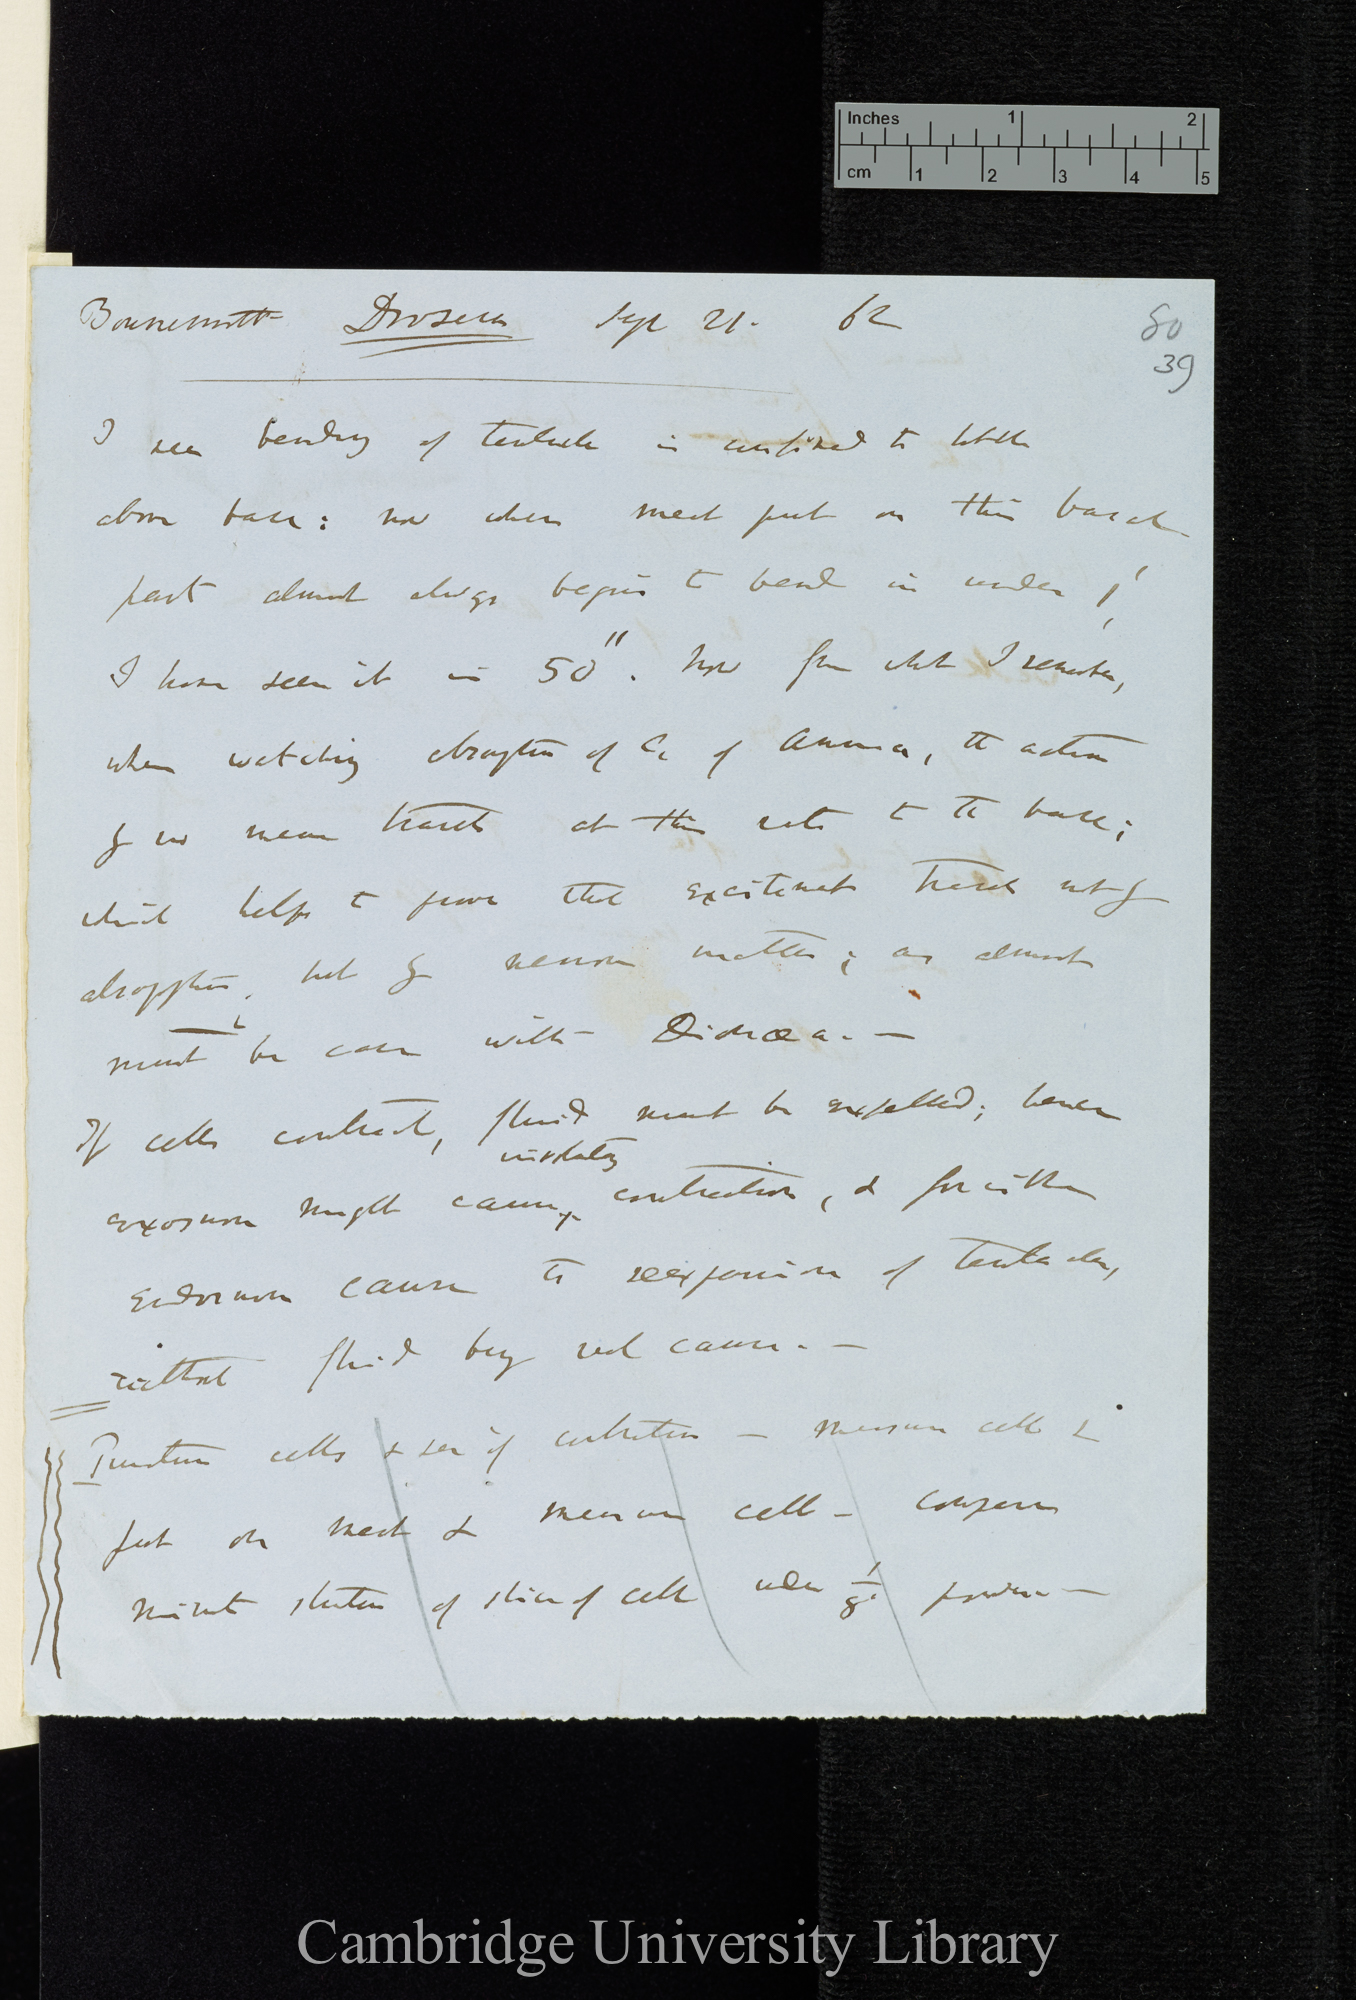 Inches 1 2
cm 1 2 3 4 5
Bournemouth Drosera Sept 21. 62
80
39
I see bending of tentacle is confined to little
above base: now when meat put on this basal
part almost always begins to bend in under 1'
I have seen it in 50". Now from what I remember,
when watching absorption of C. of Ammonia, the action
by no means travels at this rate to the base;
which helps to prove that excitement travels not by
absorption, but by nervous matter; as almost
must be case with Dionæa. —
If cells contract, fluid must be expelled; hence
exosmose might cause contraction, & for
endosmose cause the reexpansion of tentacles,
without fluid being real cause. —
Puncture cells & see if contraction — Measure cell &
put on meat & measure cell — Compare
minute of slice of cell under 1/8 —
Cambridge University Library